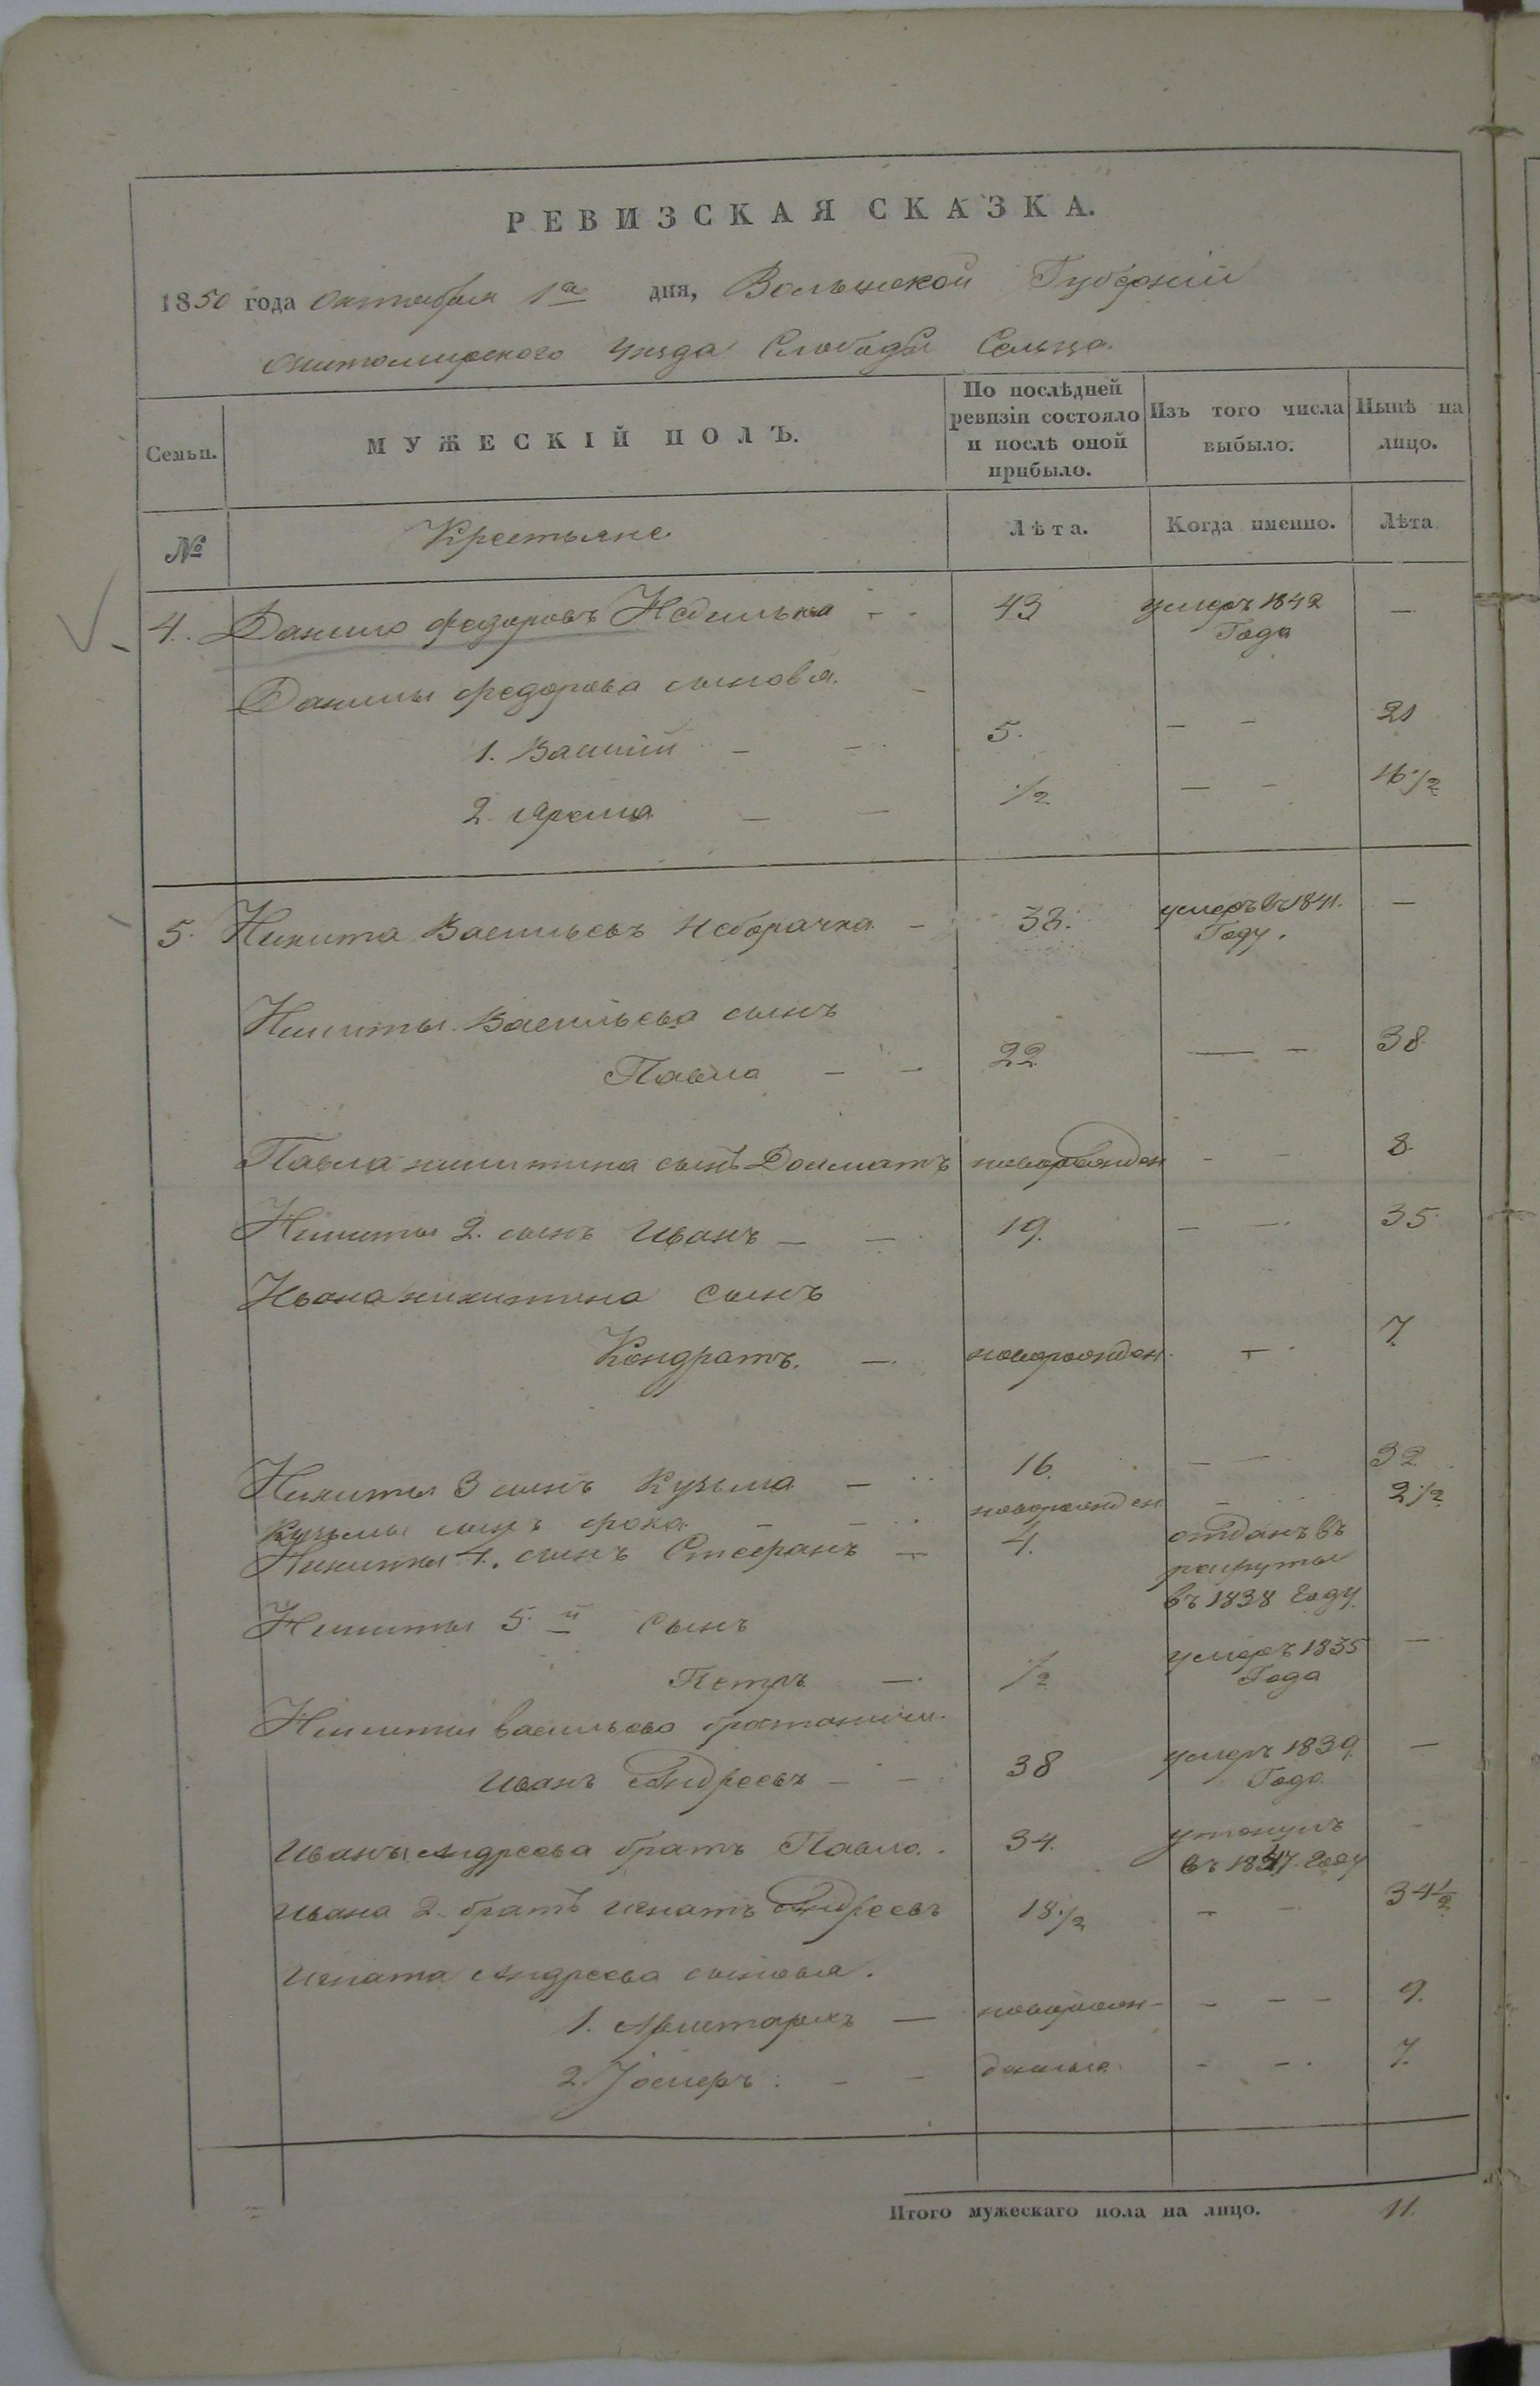 РЕВИЗСКАЯ СКАЗКА.
1850 года Октября 1го дня, Волынской Губерніи
Житомирского Уезда Слободы Сельца.
Семьи. МУЖЕСКІЙ ПОЛЪ. По послѣдней ревизіи состояло и послѣ оной прибыло. Изъ того числа выбыло. Нынѣ на лицо.
№ Крестьяне Лѣта. Когда именно. Лѣта
4. Данило Федоровъ 43 умеръ 1842 Года —
Данилы Федорова сыновья. –
1. Василій – – 5. – – 21
2. Ярема – – 1/2 – – 16 1/2
5. Никита Васильевъ Неборачка – 38. умеръ въ 1841. Году. —
Никиты Васильева сынъ
Павло – – 22 — – 38.
Павла Никитина сынъ Долматъ новорожден – – 8.
Никиты 2. сынъ Иванъ – – 19. – – 35.
Ивана Никитина сынъ
Кондратъ. – новорожден. – 7.
Никиты 3 сынъ Кузьма – 16. – – 32
Кузьмы сынъ Фока – – новорожден – 2 1/2
Никиты 4. сынъ Стефанъ – 4. отданъ въ рекруты въ 1838 Году
Никиты 5й сынъ
Петръ – 1/2 умеръ 1835 Года —
Никиты Васильева
Иванъ Андреевъ – – 38 умеръ 1839. Года —
Иваны Андреева братъ Павло. 34. утонулъ въ Году -
Ивана 2. братъ Игнатъ Андреевъ 18 1/2 – – 34 1/2
Игната Андреева сыновья.
1. Аристархъ – новорожен- – – – 9.
2. – – – – 7.
Итого мужескаго пола на лицо. 11.